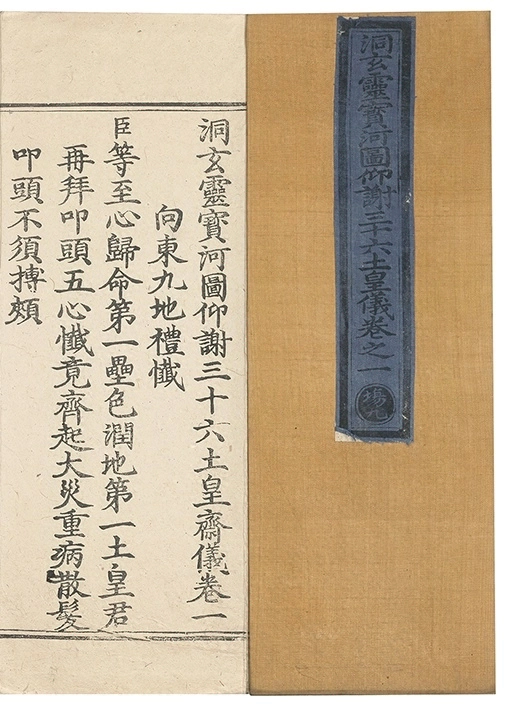 洞玄靈寶河圖仰謝三十六土皇儀卷之一
場九
洞玄靈寶河圖仰謝三十六土皇齋儀卷一
向東九地禮懴
臣等至心歸命第一壘色潤地第一土皇君
再拜叩頭五心懴竟齊起大災重病散髮
叩頭不須搏頰